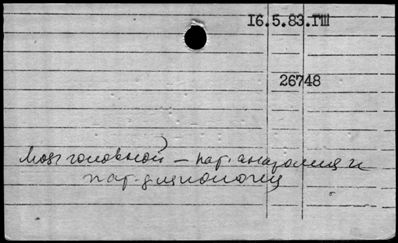 I6.5.83.ГШ
26748
Мозг головной – пат. анатомия и
пат. физиология